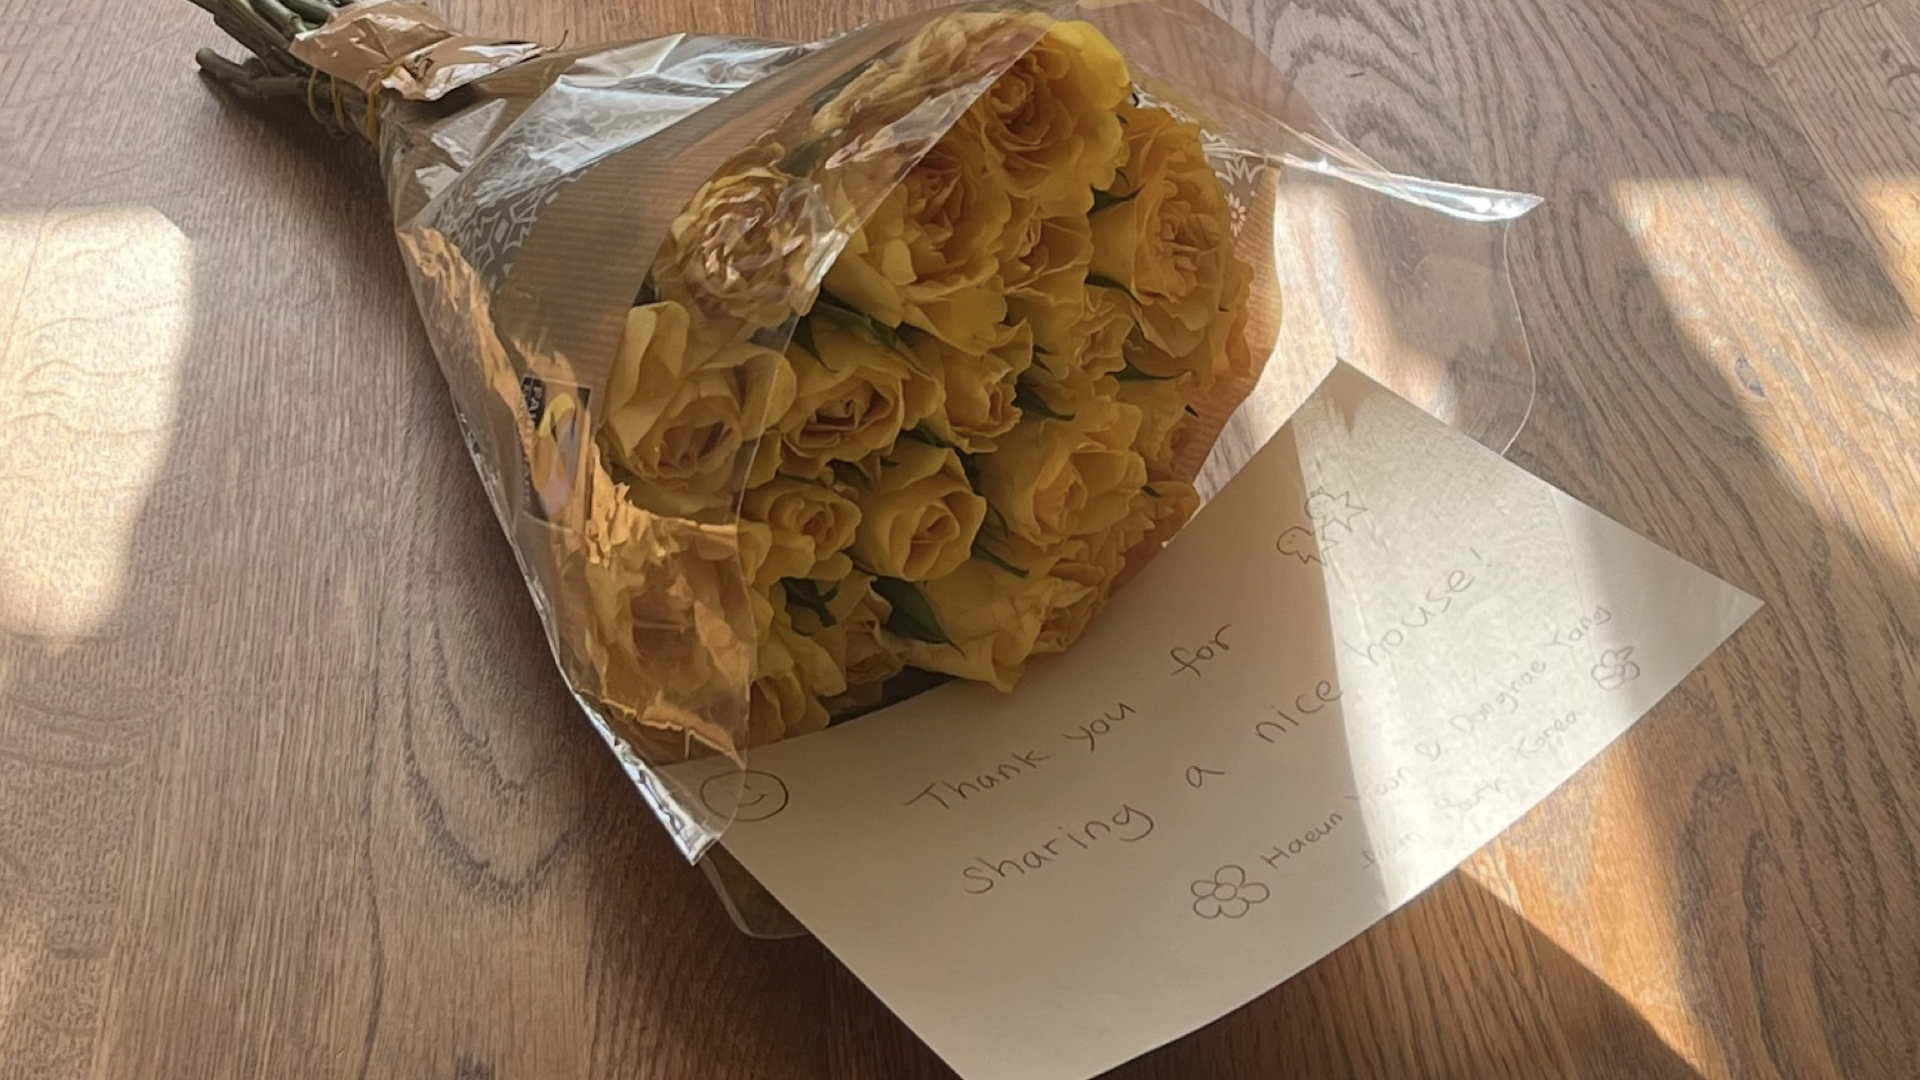 Thank you for
sharing a nice house!
Haeun & Donghae Yang
from South Korea